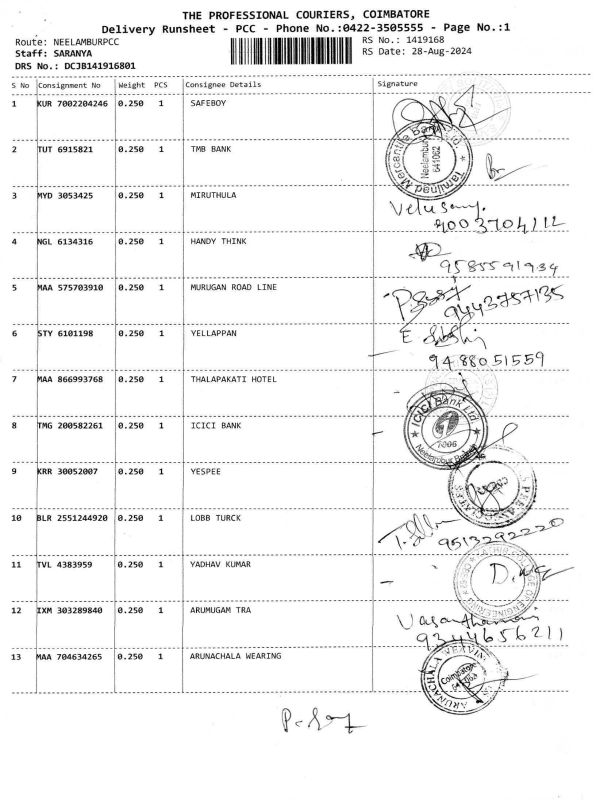 THE PROFESSIONAL COURIERS, COIMBATORE
Delivery Runsheet - PCC - Phone No.:0422-3505555 - Page No.:1
Route: NEELAMBURPCC
RS No.: 1419168
Staff: SARANYA
RS Date: 28-Aug-2024
DRS No.: DCJB141916801
S No Consignment No Weight PCS Consignee Details Signature
1 KUR 7002204246 0.250 1 SAFEBOY
2 TUT 6915821 0.250 1 TMB BANK
Tamilnad Mercantile Bank Ltd.
Neelambur
641062
3 MYD 3053425 0.250 1 MIRUTHULA
Velusamy.
9003704112
4 NGL 6134316 0.250 1 HANDY THINK
9585591934
5 MAA 575703910 0.250 1 MURUGAN ROAD LINE
9443757135
6 STY 6101198 0.250 1 YELLAPPAN
9488051559
7 MAA 866993768 0.250 1 THALAPAKATI HOTEL
8 TMG 200582261 0.250 1 ICICI BANK
ICICI Bank Ltd.
Neelambur Branch
9 KRR 30052007 0.250 1 YESPEE
10 BLR 2551244920 0.250 1 LOBB TURCK
9513292220
11 TVL 4383959 0.250 1 YADHAV KUMAR
12 IXM 303289840 0.250 1 ARUMUGAM TRA
Vasanthamani
9344656211
13 MAA 704634265 0.250 1 ARUNACHALA WEARING
ARUNACHALA
Coimbatore